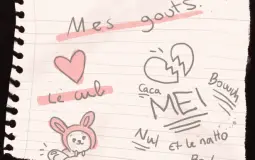 Mes gouts.
Le cul
Caca
Bouuh
ME!
Nul
et le natto